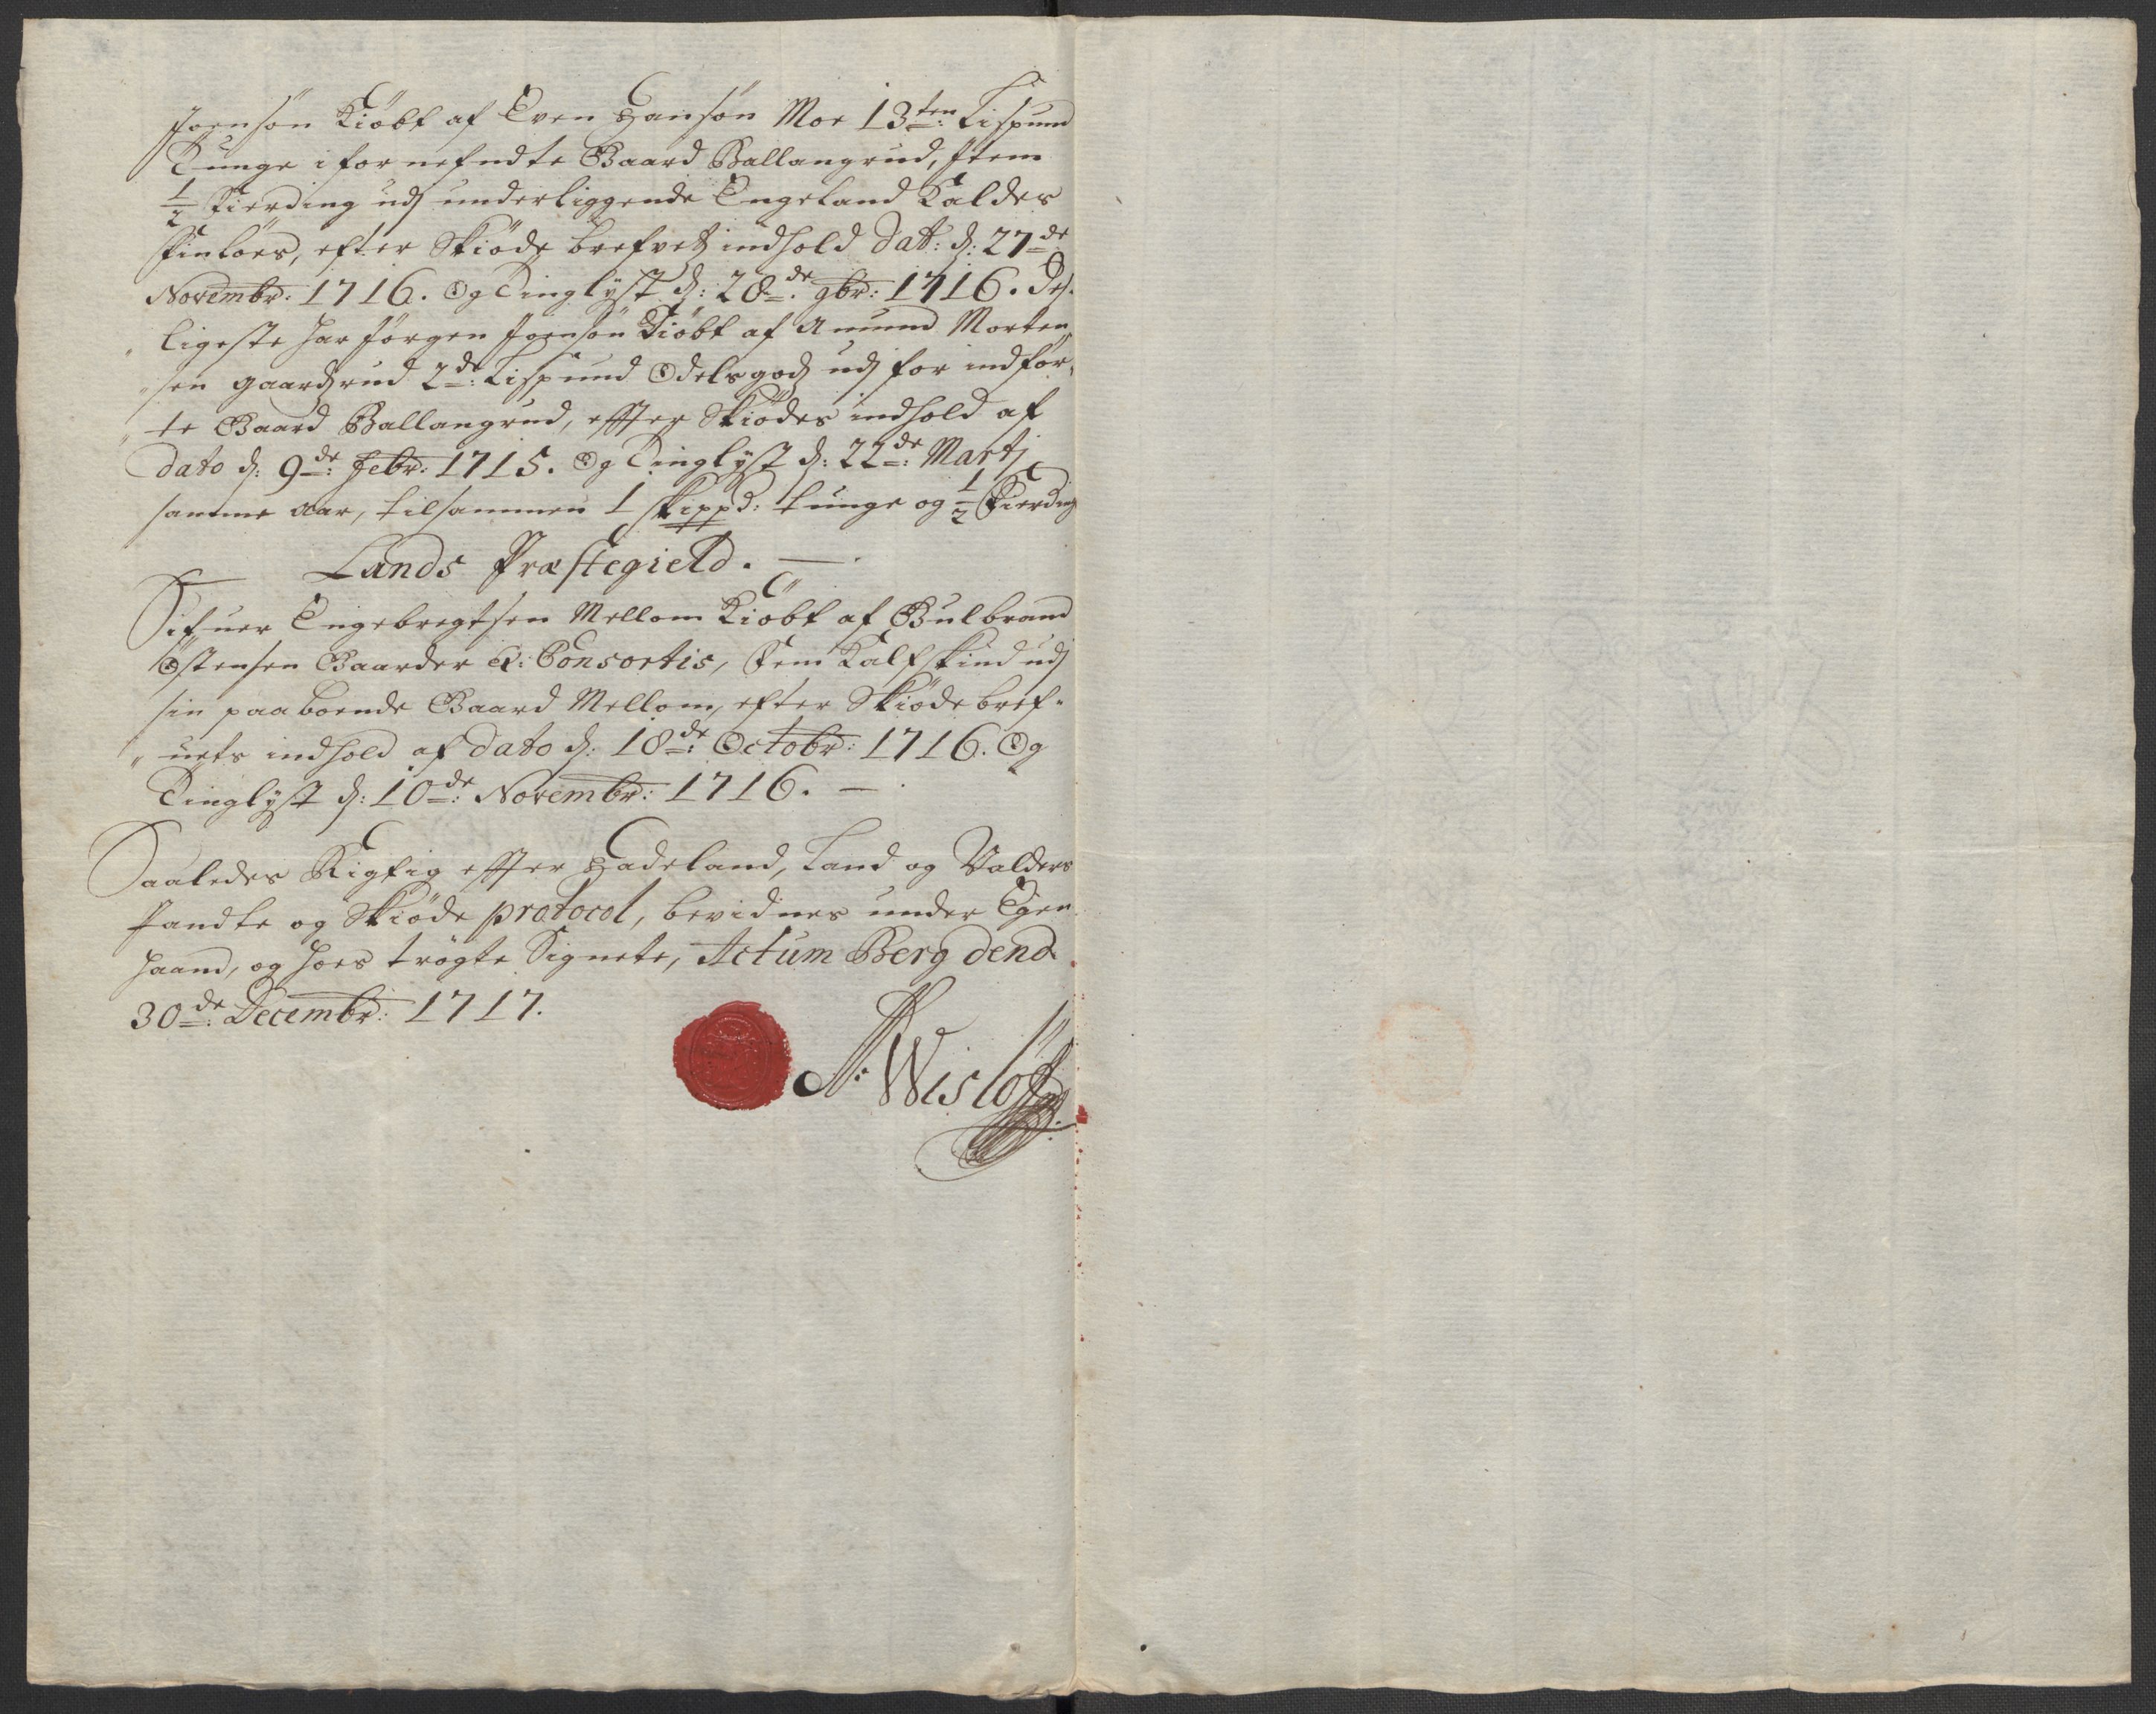 Joensøn Kiøbt af Even Hansøn Moe 13ten: Lispund
Tunge i for nefndte Gaard Ballangrud, Item
1/2 Fierding udj underliggende Engeland Kaldes
Finboes, efter Skiøde brefvets indhold dat: d: 27de
Novembr: 1716. Og Tinglyst d: 28de. 9br: 1716. Des-
ligeste har Jørgen Joensøn Kiøbt af Amund Morten,,
,,sen gaardsrud 2de: Lispund Odelsgods udj for indfør,,
,,te Gaard Ballangrud, effter Skiødes indhold af
dato d: 9de: Febr: 1715. Og Tinglyst d: 22de: Martj
samme aar, tilsammen 1 skippd: tunge og 1/2 Fierding
Lands Præstegield. —
Sifuer Engebregtsen Mellom Kiøbt af Gulbrand
Østensen Gaarder &: Consortis, Fem Kalfskind udj
sin paaboende Gaard Mellom, efter Skiøde bref-
,,uets indhold af dato d: 18de: Octobr: 1716. Og
Tinglyst d: 10de: Novembr: 1716. —
Saaledes Rigtig effter Hadeland, Land og Valders
Pandte og Skiøde protocol, bevidnes under Egen
haand, og hoes trøgte Signete, Actum Berg dend
30de: Decembr: 1717.
A: Wisløff